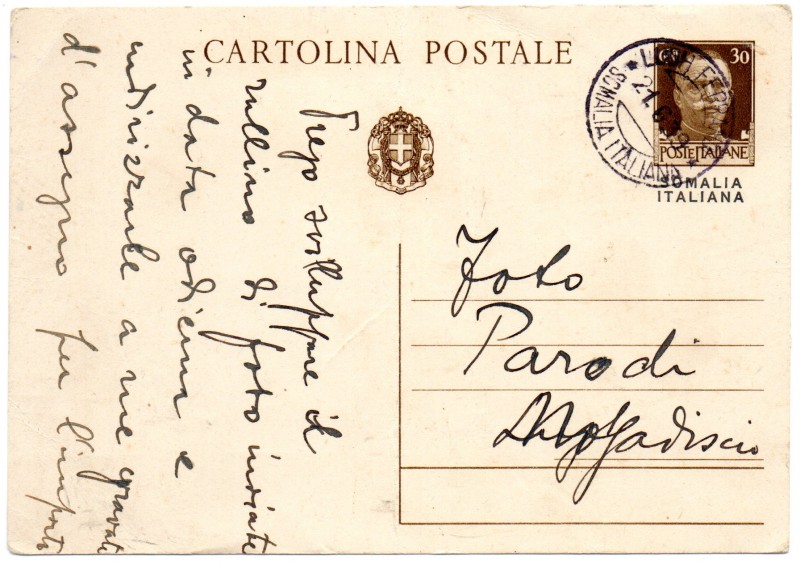 CARTOLINA POSTALE
30
POSTE ITALIANE
SOMALIA
ITALIANA
SOMALIA ITALIANA
21
Foto
Parodi
Mogadiscio
Prego sviluppare il
rullino di foto inviate
in data odierna e
indirizzarle a me gravate
d'assegno per l'importo